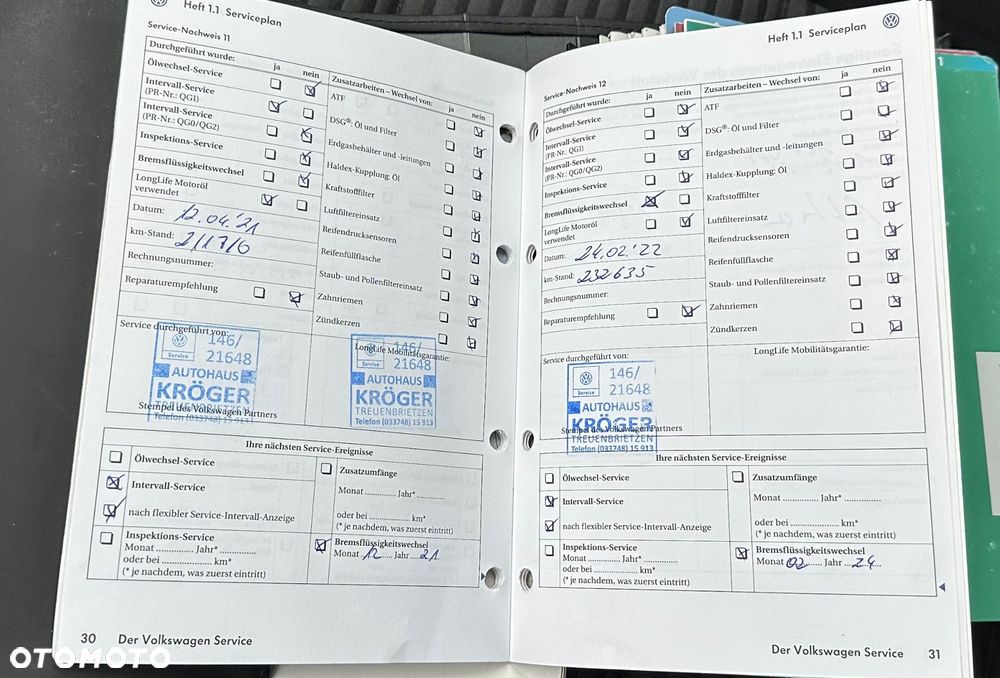 Heft 1.1 Serviceplan
Service-Nachweis 11
Durchgeführt wurde: ja nein
Ölwechsel-Service
Intervall-Service
(PR-Nr.: QG1)
Intervall-Service
(PR-Nr.: QG0/QG2)
Inspektions-Service
Bremsflüssigkeitswechsel
LongLife Motoröl
verwendet
Datum: 12.04.21
km-Stand:
Rechnungsnummer:
Reparaturempfehlung
Zusatzarbeiten – Wechsel von: ja nein
ATF
DSG®: Öl und Filter
Erdgasbehälter und -leitungen
Haldex-Kupplung: Öl
Kraftstofffilter
Luftfiltereinsatz
Reifendrucksensoren
Reifenfüllflasche
Staub- und Pollenfiltereinsatz
Zahnriemen
Zündkerzen
Service durchgeführt von:
146/
21648
Service
AUTOHAUS
KRÖGER
TREUENBRIETZEN
Telefon (033748) 15 913
Stempel des Volkswagen Partners
LongLife Mobilitätsgarantie:
146/
21648
Service
AUTOHAUS
KRÖGER
TREUENBRIETZEN
Telefon (033748) 15 913
Ihre nächsten Service-Ereignisse
Ölwechsel-Service
Intervall-Service
nach flexibler Service-Intervall-Anzeige
Inspektions-Service
Monat .............. Jahr* ..............
oder bei .................... km*
(* je nachdem, was zuerst eintritt)
Zusatzumfänge
Monat ............ Jahr* ............
oder bei ................ km*
(* je nachdem, was zuerst eintritt)
Bremsflüssigkeitswechsel
Monat 12 Jahr 21
30 Der Volkswagen Service
Heft 1.1 Serviceplan
Service-Nachweis 12
Durchgeführt wurde: ja nein
Ölwechsel-Service
Intervall-Service
(PR-Nr.: QG1)
Intervall-Service
(PR-Nr.: QG0/QG2)
Inspektions-Service
Bremsflüssigkeitswechsel
LongLife Motoröl
verwendet
Datum: 24.02.'22
km-Stand: 232635
Rechnungsnummer:
Reparaturempfehlung
Zusatzarbeiten – Wechsel von: ja nein
ATF
DSG®: Öl und Filter
Erdgasbehälter und -leitungen
Haldex-Kupplung: Öl
Kraftstofffilter
Luftfiltereinsatz
Reifendrucksensoren
Reifenfüllflasche
Staub- und Pollenfiltereinsatz
Zahnriemen
Zündkerzen
Service durchgeführt von:
146/
21648
Service
AUTOHAUS
KRÖGER
TREUENBRIETZEN
Telefon (033748) 15 913
Stempel des Volkswagen Partners
LongLife Mobilitätsgarantie:
Ihre nächsten Service-Ereignisse
Ölwechsel-Service
Intervall-Service
nach flexibler Service-Intervall-Anzeige
Inspektions-Service
Monat .............. Jahr* ..............
oder bei .................... km*
(* je nachdem, was zuerst eintritt)
Zusatzumfänge
Monat ............ Jahr* ............
oder bei ................ km*
(* je nachdem, was zuerst eintritt)
Bremsflüssigkeitswechsel
Monat 02 Jahr 24
Der Volkswagen Service 31
1
OTOMOTO